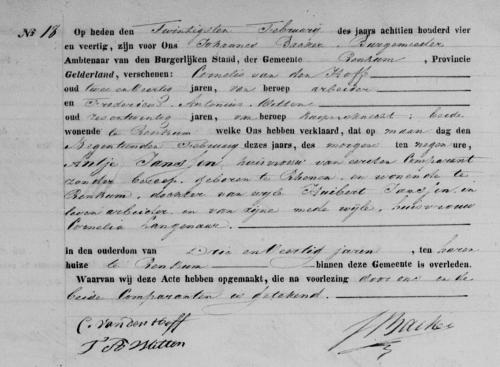 No 18 Op heden den Twintigsten Februarij des jaars achttien honderd vier
en veertig, zijn voor Ons Johannes Backer, Burgemeester
Ambtenaar van den Burgerlijken Stand, der Gemeente Renkum, Provincie
Gelderland, verschenen: Cornelis van den Hoff
oud twee en veertig jaren, van beroep arbeider
en Fredericus Antonius Witten
oud zes en twintig jaren, van beroep beide
wonende te Renkum welke Ons hebben verklaard, dat op maan dag den
Negentienden Februarij dezes jaars, des morgens ten negen ure,
Antje Jansen, huisvrouw van eersten Comparant
zonder beroep, geboren te Rhenen en wonende te
Renkum, dochter van wyle Huibert Jansen, in
leven arbeider en van zijne mede wyle huisvrouw
Cornelia Langenaar
in den ouderdom van Drie en Veertig jaren, ten haren
huize te Renkum binnen deze Gemeente is overleden.
Waarvan wij deze Acte hebben opgemaakt, die na voorlezing door ons en de
beide Comparanten is getekend.
C. van den Hoff
Witten
Backer